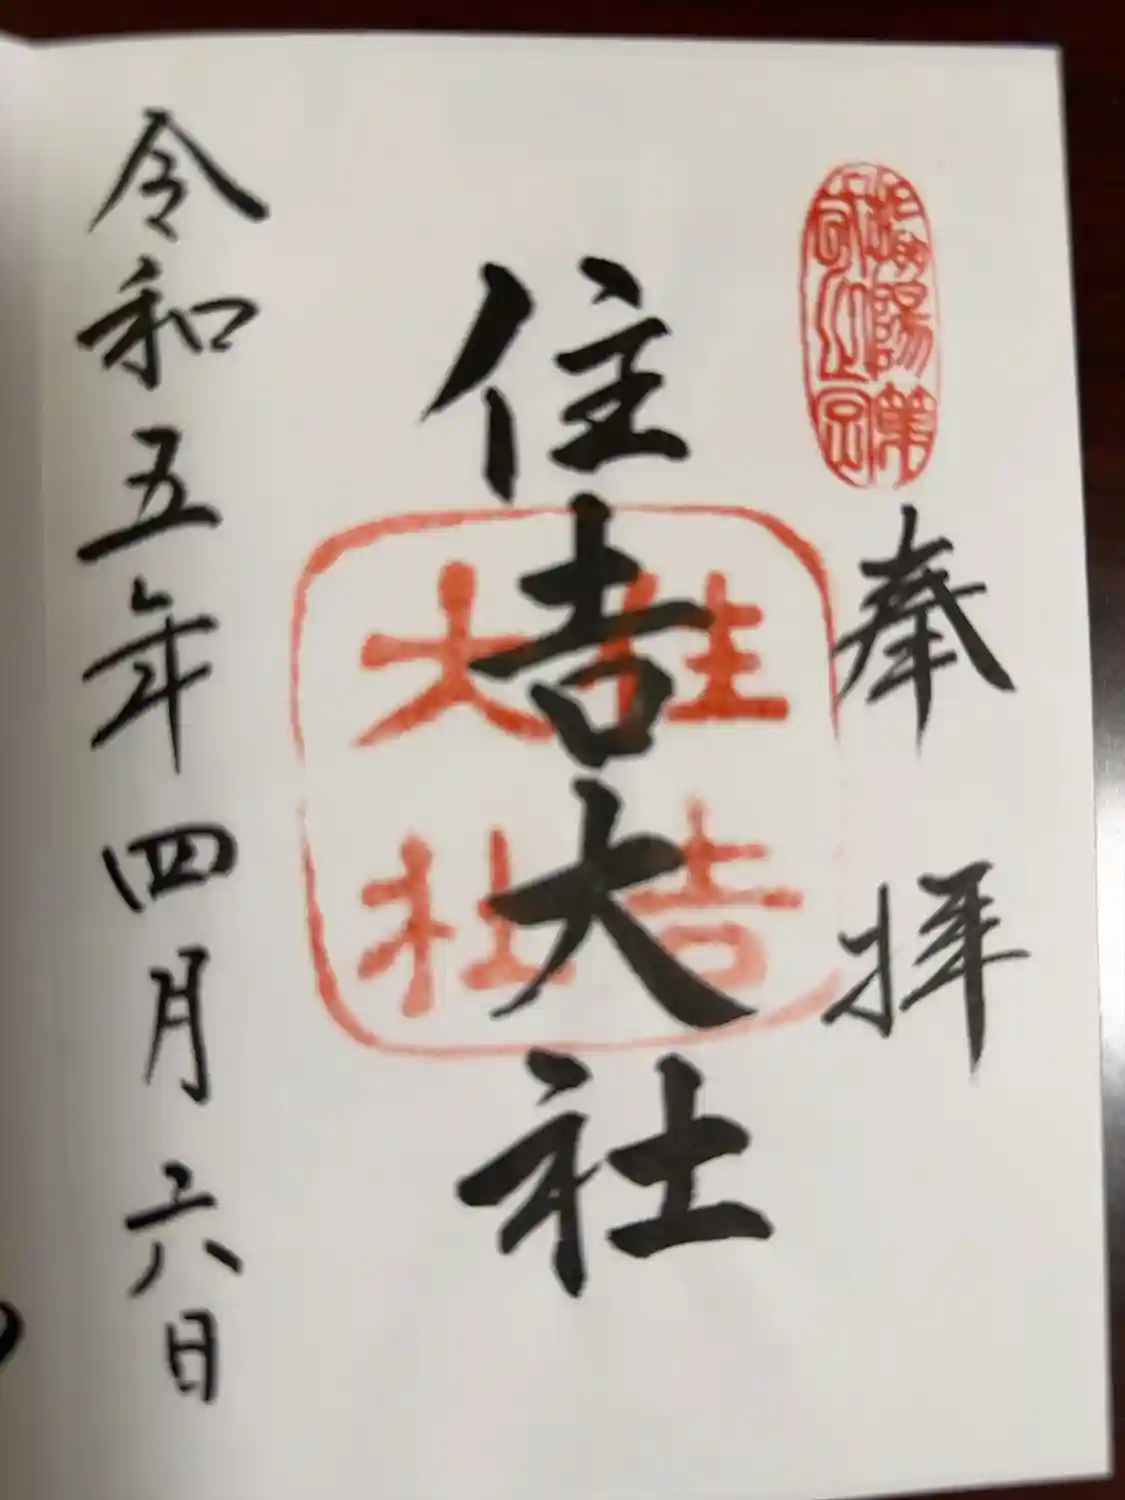 奉拝
住吉大社
住吉
大社
令和五年四月六日